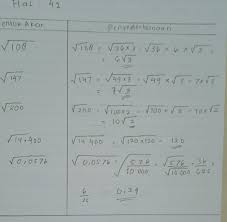 Hal 42
Bentuk Akar Penyederhanaan
√108 √108 = √36×3 = √36 × √3
= 6√3
√147 √147 = √49×3 = √49 × √3 = 7×√3
= 7√3
√200 √200 = √100×2 = √100 × √2 = 10×√2
= 10√2
√14.400 √14.400 = √120×120 = 120
√0,0576 √0,0576 = √576/10000 = √576/√10000
0,24